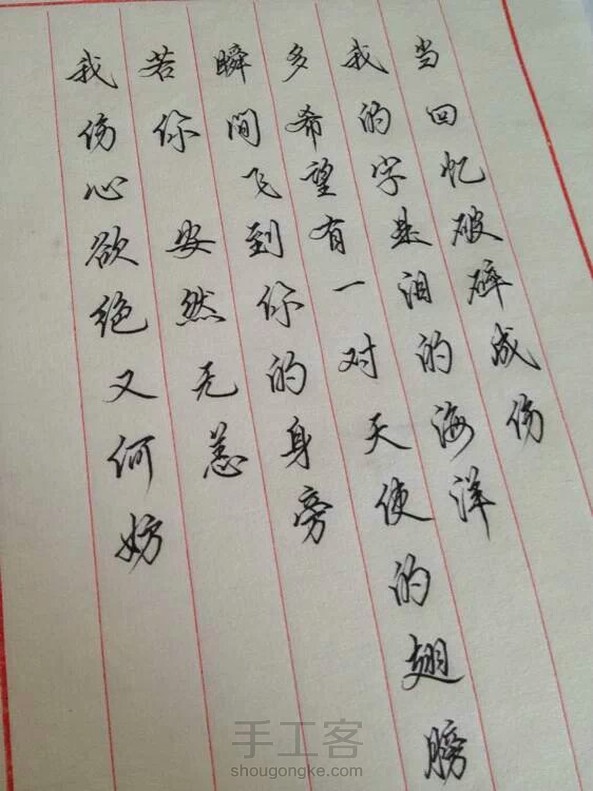 当回忆破碎成伤
我的字是泪的海洋
多希望有一对天使的翅膀
瞬间飞到你的身旁
若你安然无恙
我伤心欲绝又何妨
手工客
shougongke.com